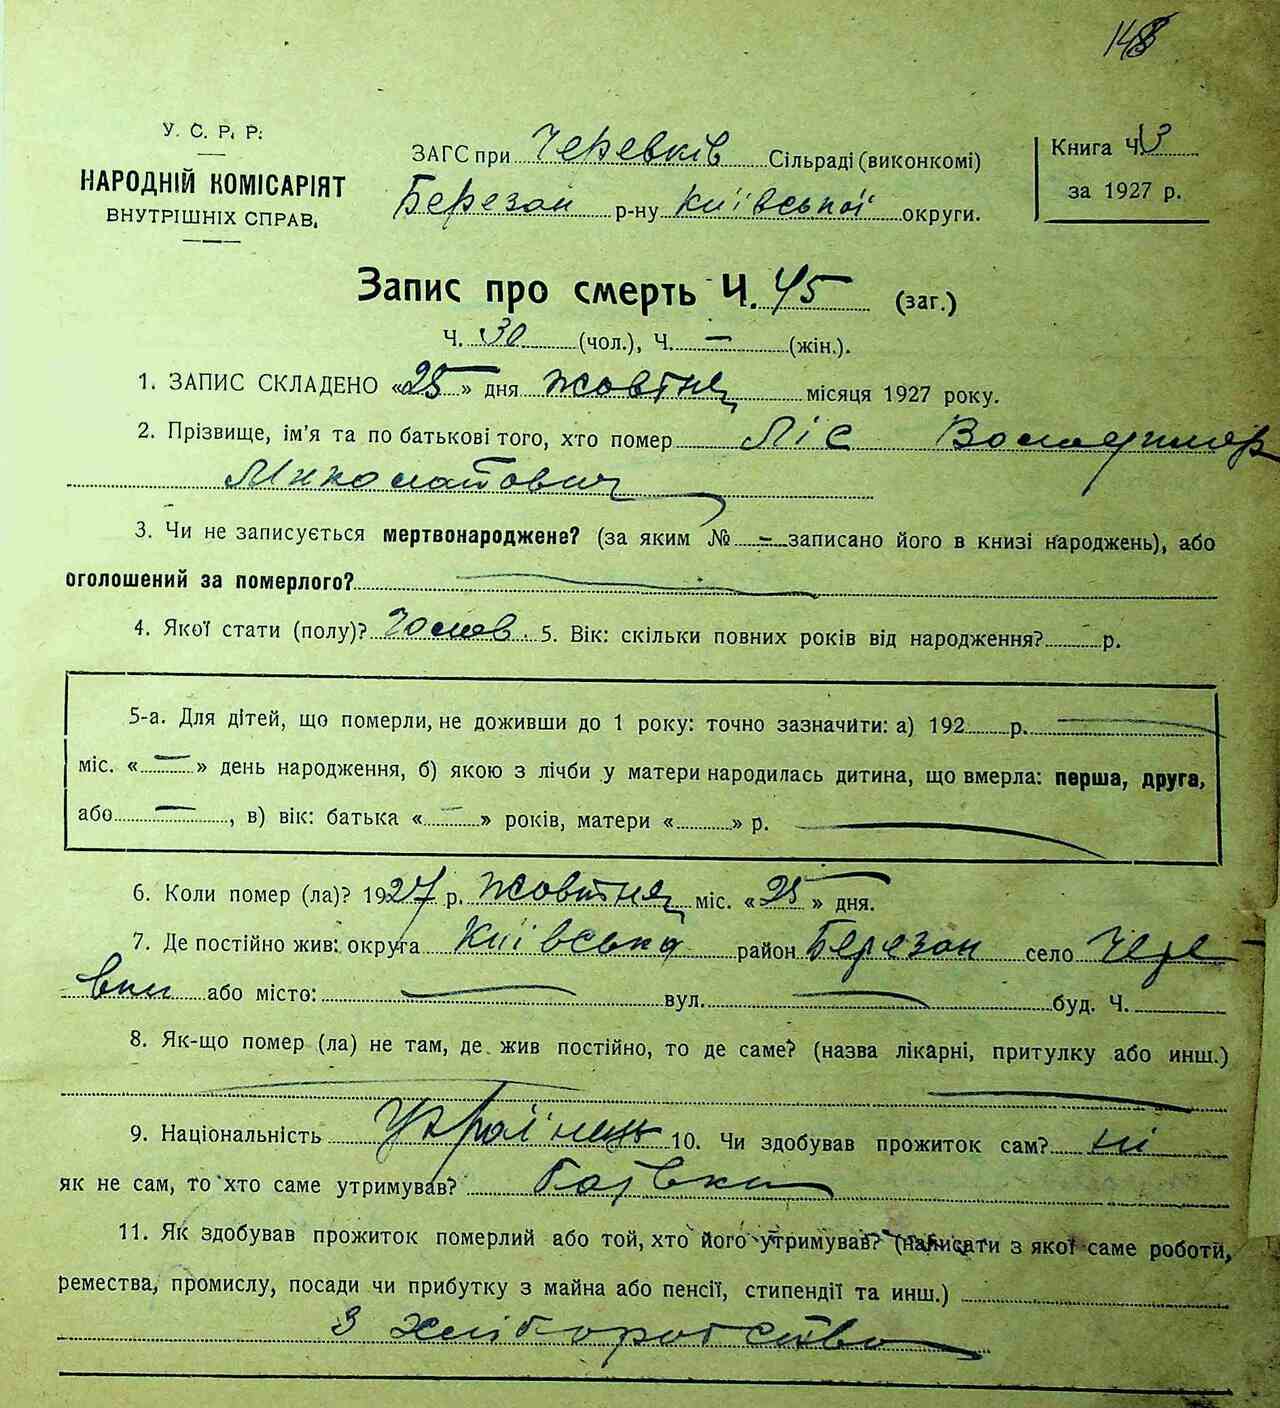 148
У. С. Р. Р.
НАРОДНІЙ КОМІСАРІЯТ
ВНУТРІШНІХ СПРАВ.
ЗАГС при Черевків Сільраді (виконкомі)
Березан р-ну Київської округи.
Книга Ч. 3
за 1927 р.
Запис про смерть Ч. 45 (заг.)
Ч. 30 (чол.), Ч. — (жін.).
1. ЗАПИС СКЛАДЕНО «25» дня жовтня місяця 1927 року.
2. Прізвище, ім'я та по батькові того, хто помер Ліс Володимер
Миколайович
3. Чи не записується мертвонароджене? (за яким № - записано його в книзі народжень), або
оголошений за померлого?
4. Якої стати (полу)? Чолов. 5. Вік: скільки повних років від народження? р.
5-а. Для дітей, що померли, не доживши до 1 року: точно зазначити: а) 192 р.
міс. «—» день народження, б) якою з лічби у матери народилась дитина, що вмерла: перша, друга,
або —, в) вік: батька «—» років, матери « » р.
6. Коли помер (ла)? 1927 р. жовтня міс. «25» дня.
7. Де постійно жив: округа Київська район Березан село Чере-
вки або місто: — вул. — буд. Ч.
8. Як-що помер (ла) не там, де жив постійно, то де саме? (назва лікарні, притулку або инш.)
9. Національність Українець 10. Чи здобував прожиток сам? ні
як не сам, то хто саме утримував? батьки
11. Як здобував прожиток померлий або той, хто його утримував? (написати з якої саме роботи,
ремества, промислу, посади чи прибутку з майна або пенсії, стипендії та инш.)
З хліборобство